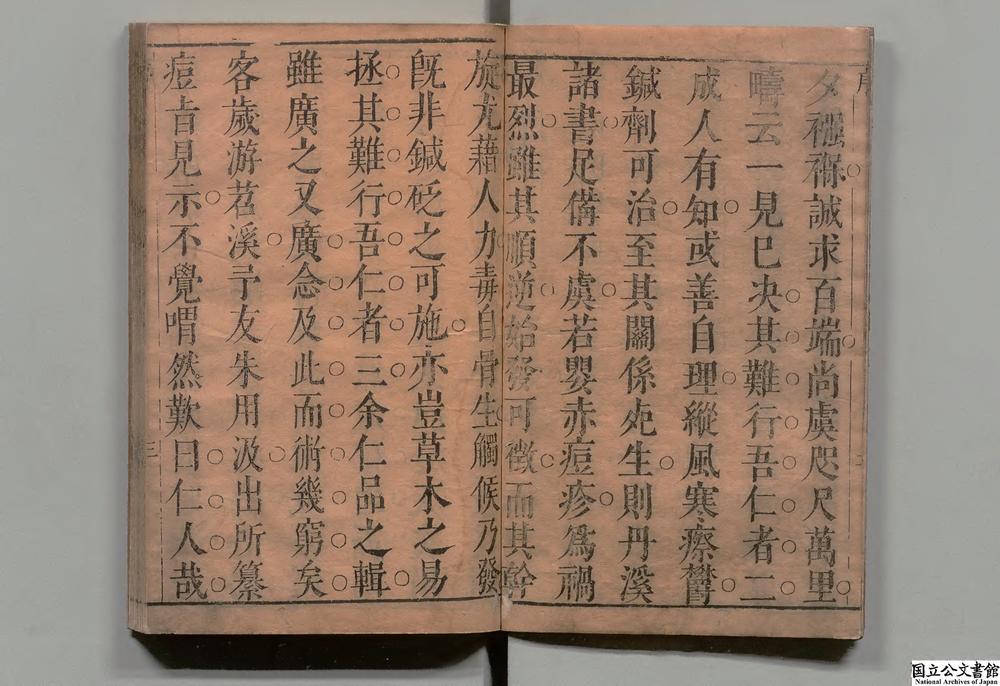 夕襁褓誠求百端尚虞咫尺萬里
疇云一見已决其難行吾仁者二
成人有知或善自理縱風寒瘵欝
鍼劑可治至其關係死生則丹溪
諸書足備不虞若嬰赤痘疹爲禍
最烈雖其順逆始發可徵而其幹
旋尤藉人力毒自骨生觸候乃發
旣非鍼砭之可施亦豈草木之易
拯其難行吾仁者三余仁品之輯
雖廣之又廣念及此而術幾窮矣
客歲游苕溪予友朱用汲出所纂
痘旨見示不覺喟然歎曰仁人哉
三
国立公文書館
National Archives of Japan